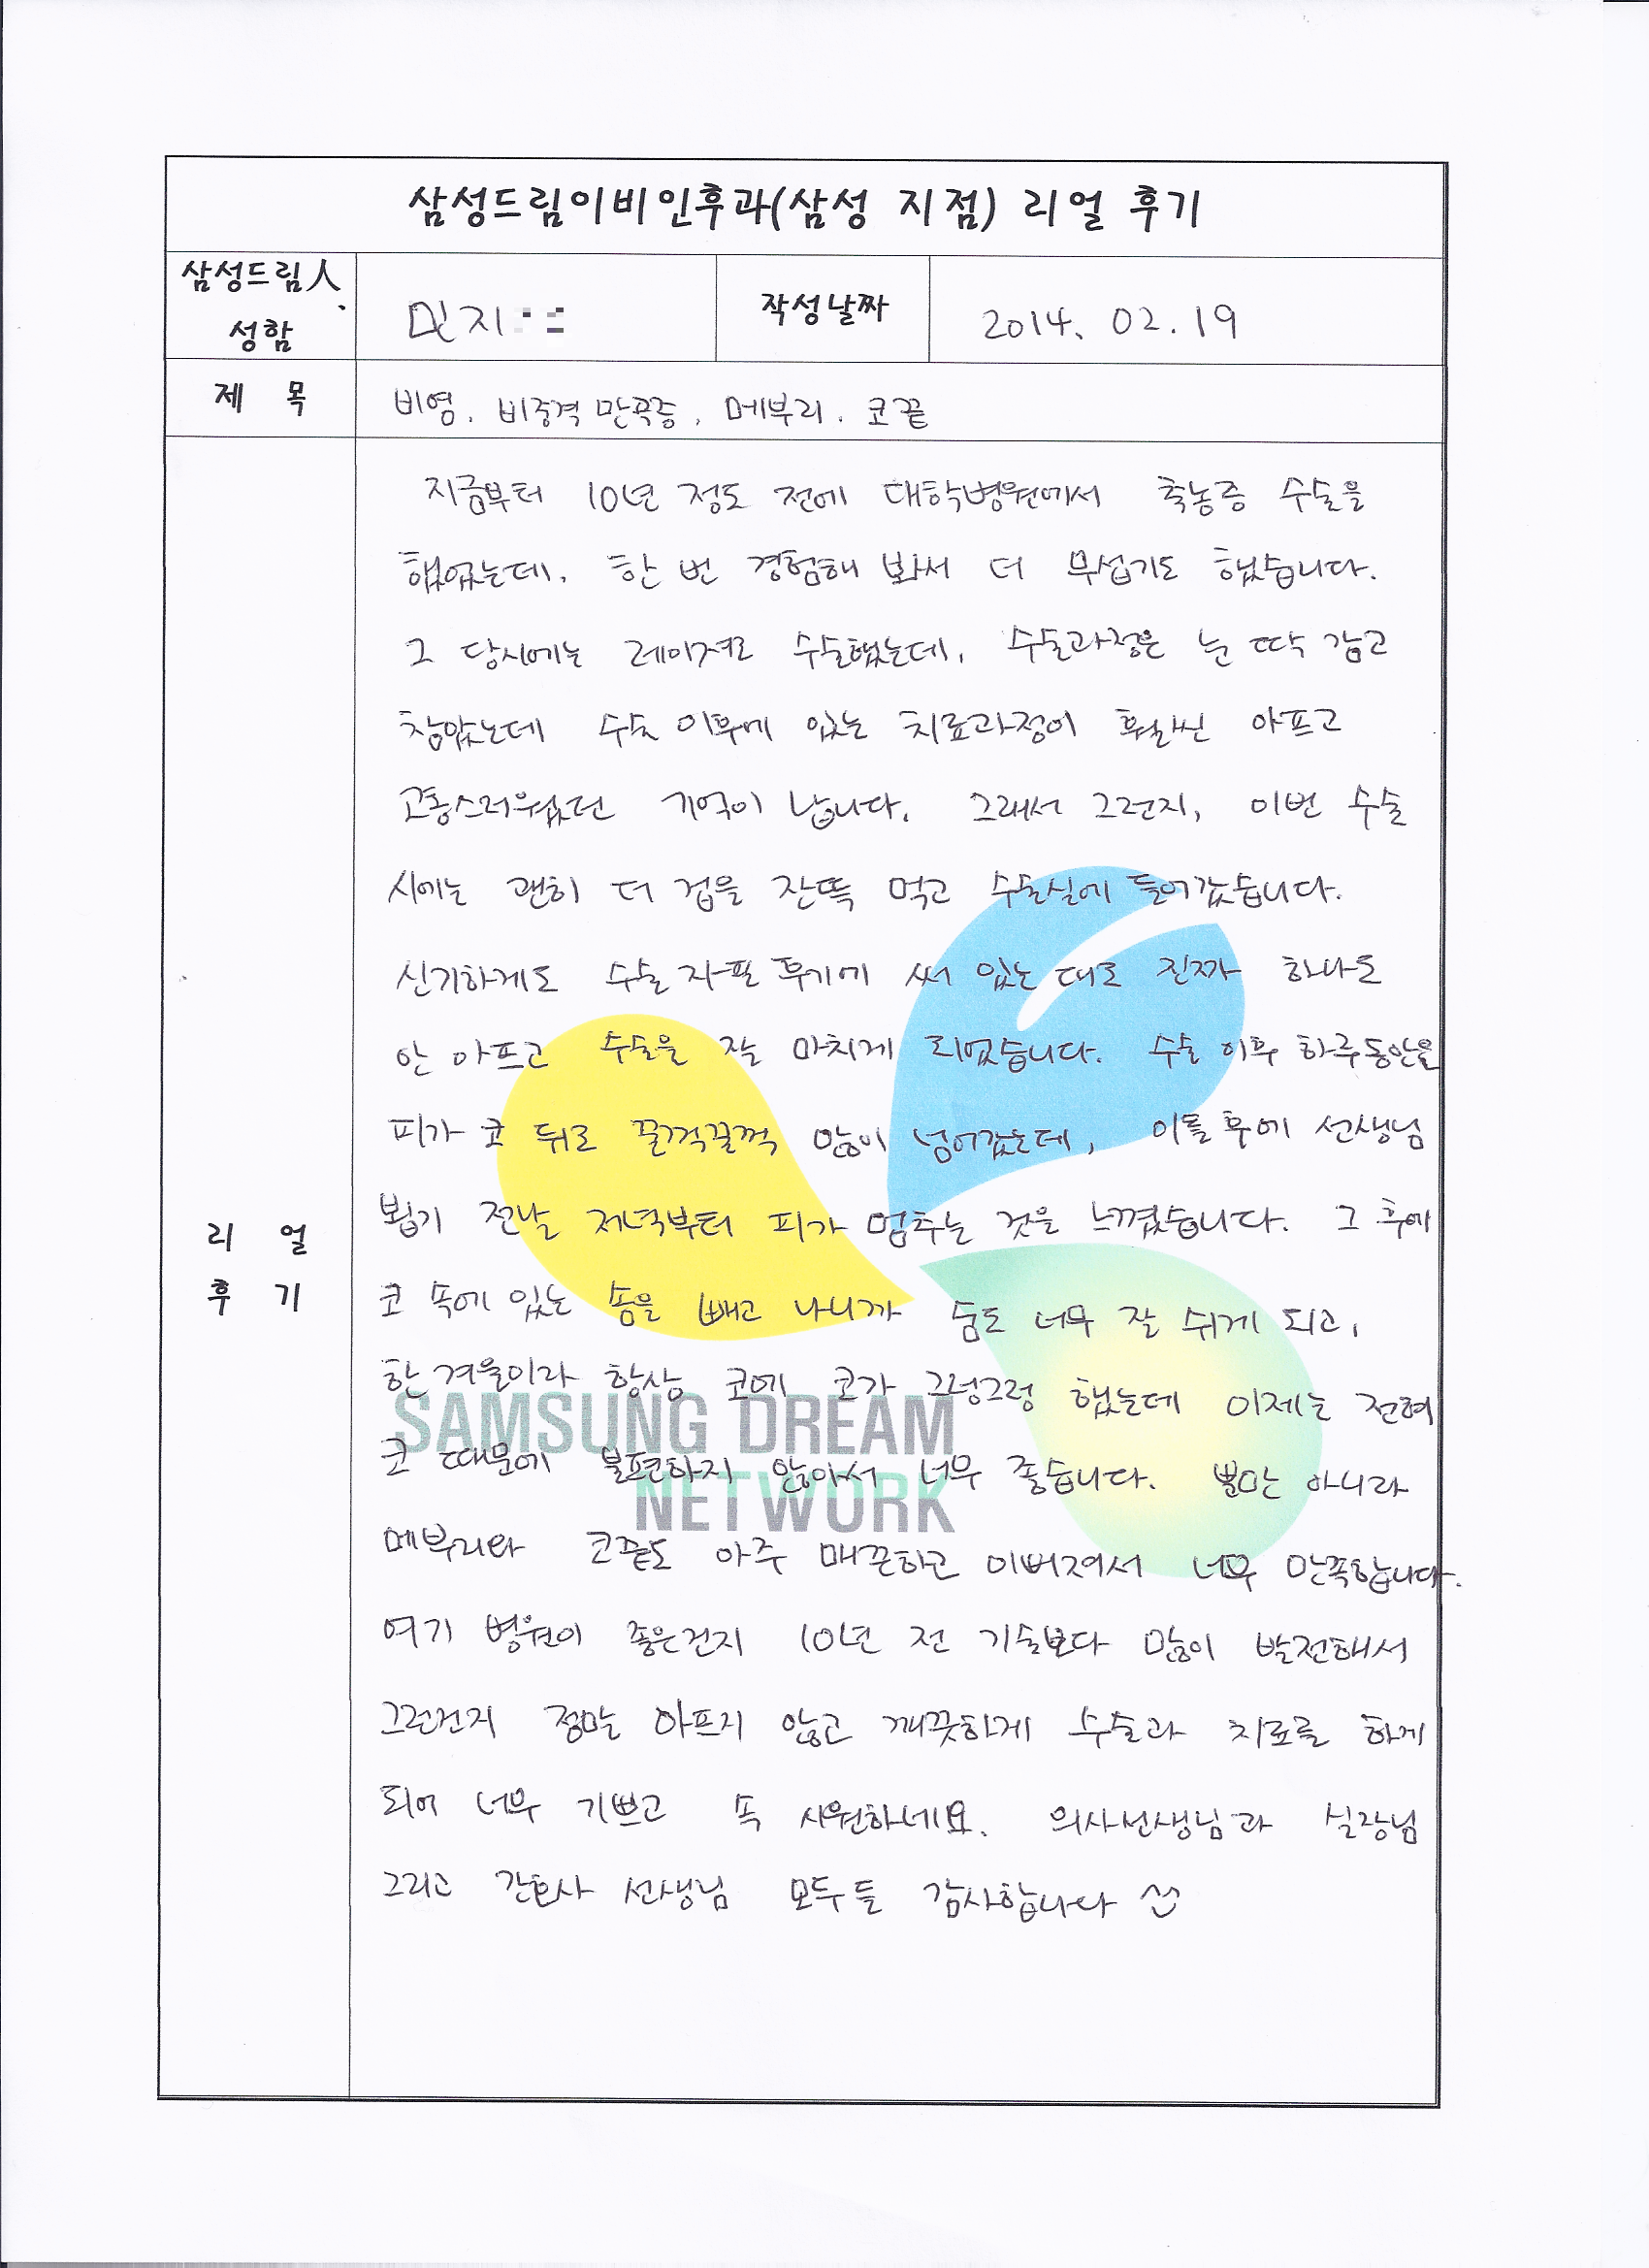 삼성드림이비인후과(삼성 지점) 리얼 후기
삼성드림人
성함
민지
작성날짜
2014. 02. 19
제 목
비염. 비중격 만곡증, 메부리. 코끝
리 얼
후 기
지금부터 10년 정도 전에 대학병원에서 축농증 수술을
했었는데. 한 번 경험해 봐서 더 무섭기도 했습니다.
그 당시에는 레이져로 수술했는데, 수술과정은 눈 딱 감고
참았는데 수술 이후에 있는 치료과정이 훨씬 아프고
고통스러웠던 기억이 납니다. 그래서 그런지, 이번 수술
시에는 괜히 더 겁을 잔뜩 먹고 수술실에 들어갔습니다.
신기하게도 수술 자필 후기에 써 있는 대로 진짜 하나도
안 아프고 수술을 잘 마치게 되었습니다. 수술 이후 하루동안을
피가 코 뒤로 꿀꺽꿀꺽 많이 넘어갔는데, 이틀 후에 선생님
뵙기 전날 저녁부터 피가 멈추는 것을 느꼈습니다. 그 후에
코 속에 있는 솜을 빼고 나니까 숨도 너무 잘 쉬게 되고,
한 겨울이라 항상 코에 코가 그렁그렁 했는데 이제는 전혀
코 때문에 불편하지 않아서 너무 좋습니다. 뿐만 아니라
메부리와 코끝도 아주 매끈하고 이뻐져서 너무 만족합니다.
여기 병원이 좋은건지 10년 전 기술보다 많이 발전해서
그런건지 정말 아프지 않고 깨끗하게 수술과 치료를 하게
되어 너무 기쁘고 속 시원하네요. 의사선생님과 실장님
그리고 간호사 선생님 모두들 감사합니다 ^^
SAMSUNG DREAM
NETWORK